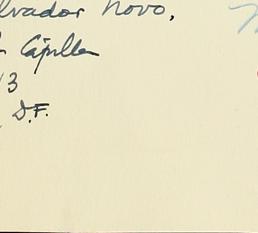 lvador Novo,
Capilla
3
D.F.